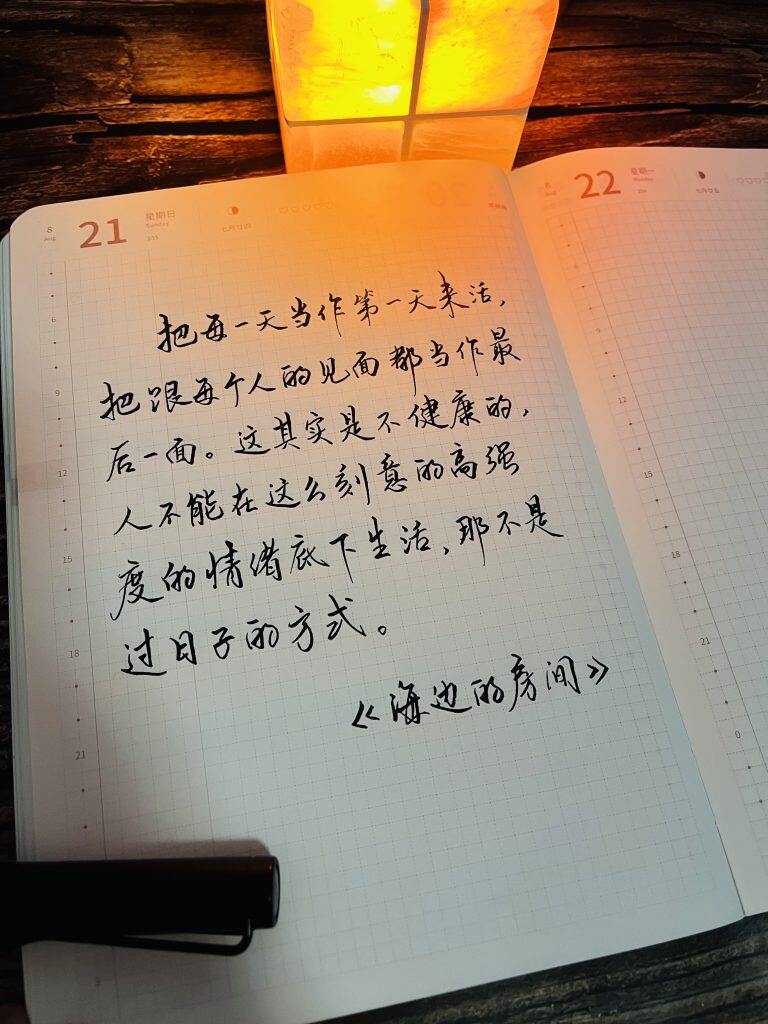 8
Aug
21
星期日
Sunday
233
七月廿四
22
星期一
Monday
七月廿五
把每一天当作第一天来活,
把跟每个人的见面都当作最
后一面。这其实是不健康的,
人不能在这么刻意的高强
度的情绪底下生活,那不是
过日子的方式。
《海边的房间》
6
9
12
15
18
21
3
6
9
12
15
18
21
0